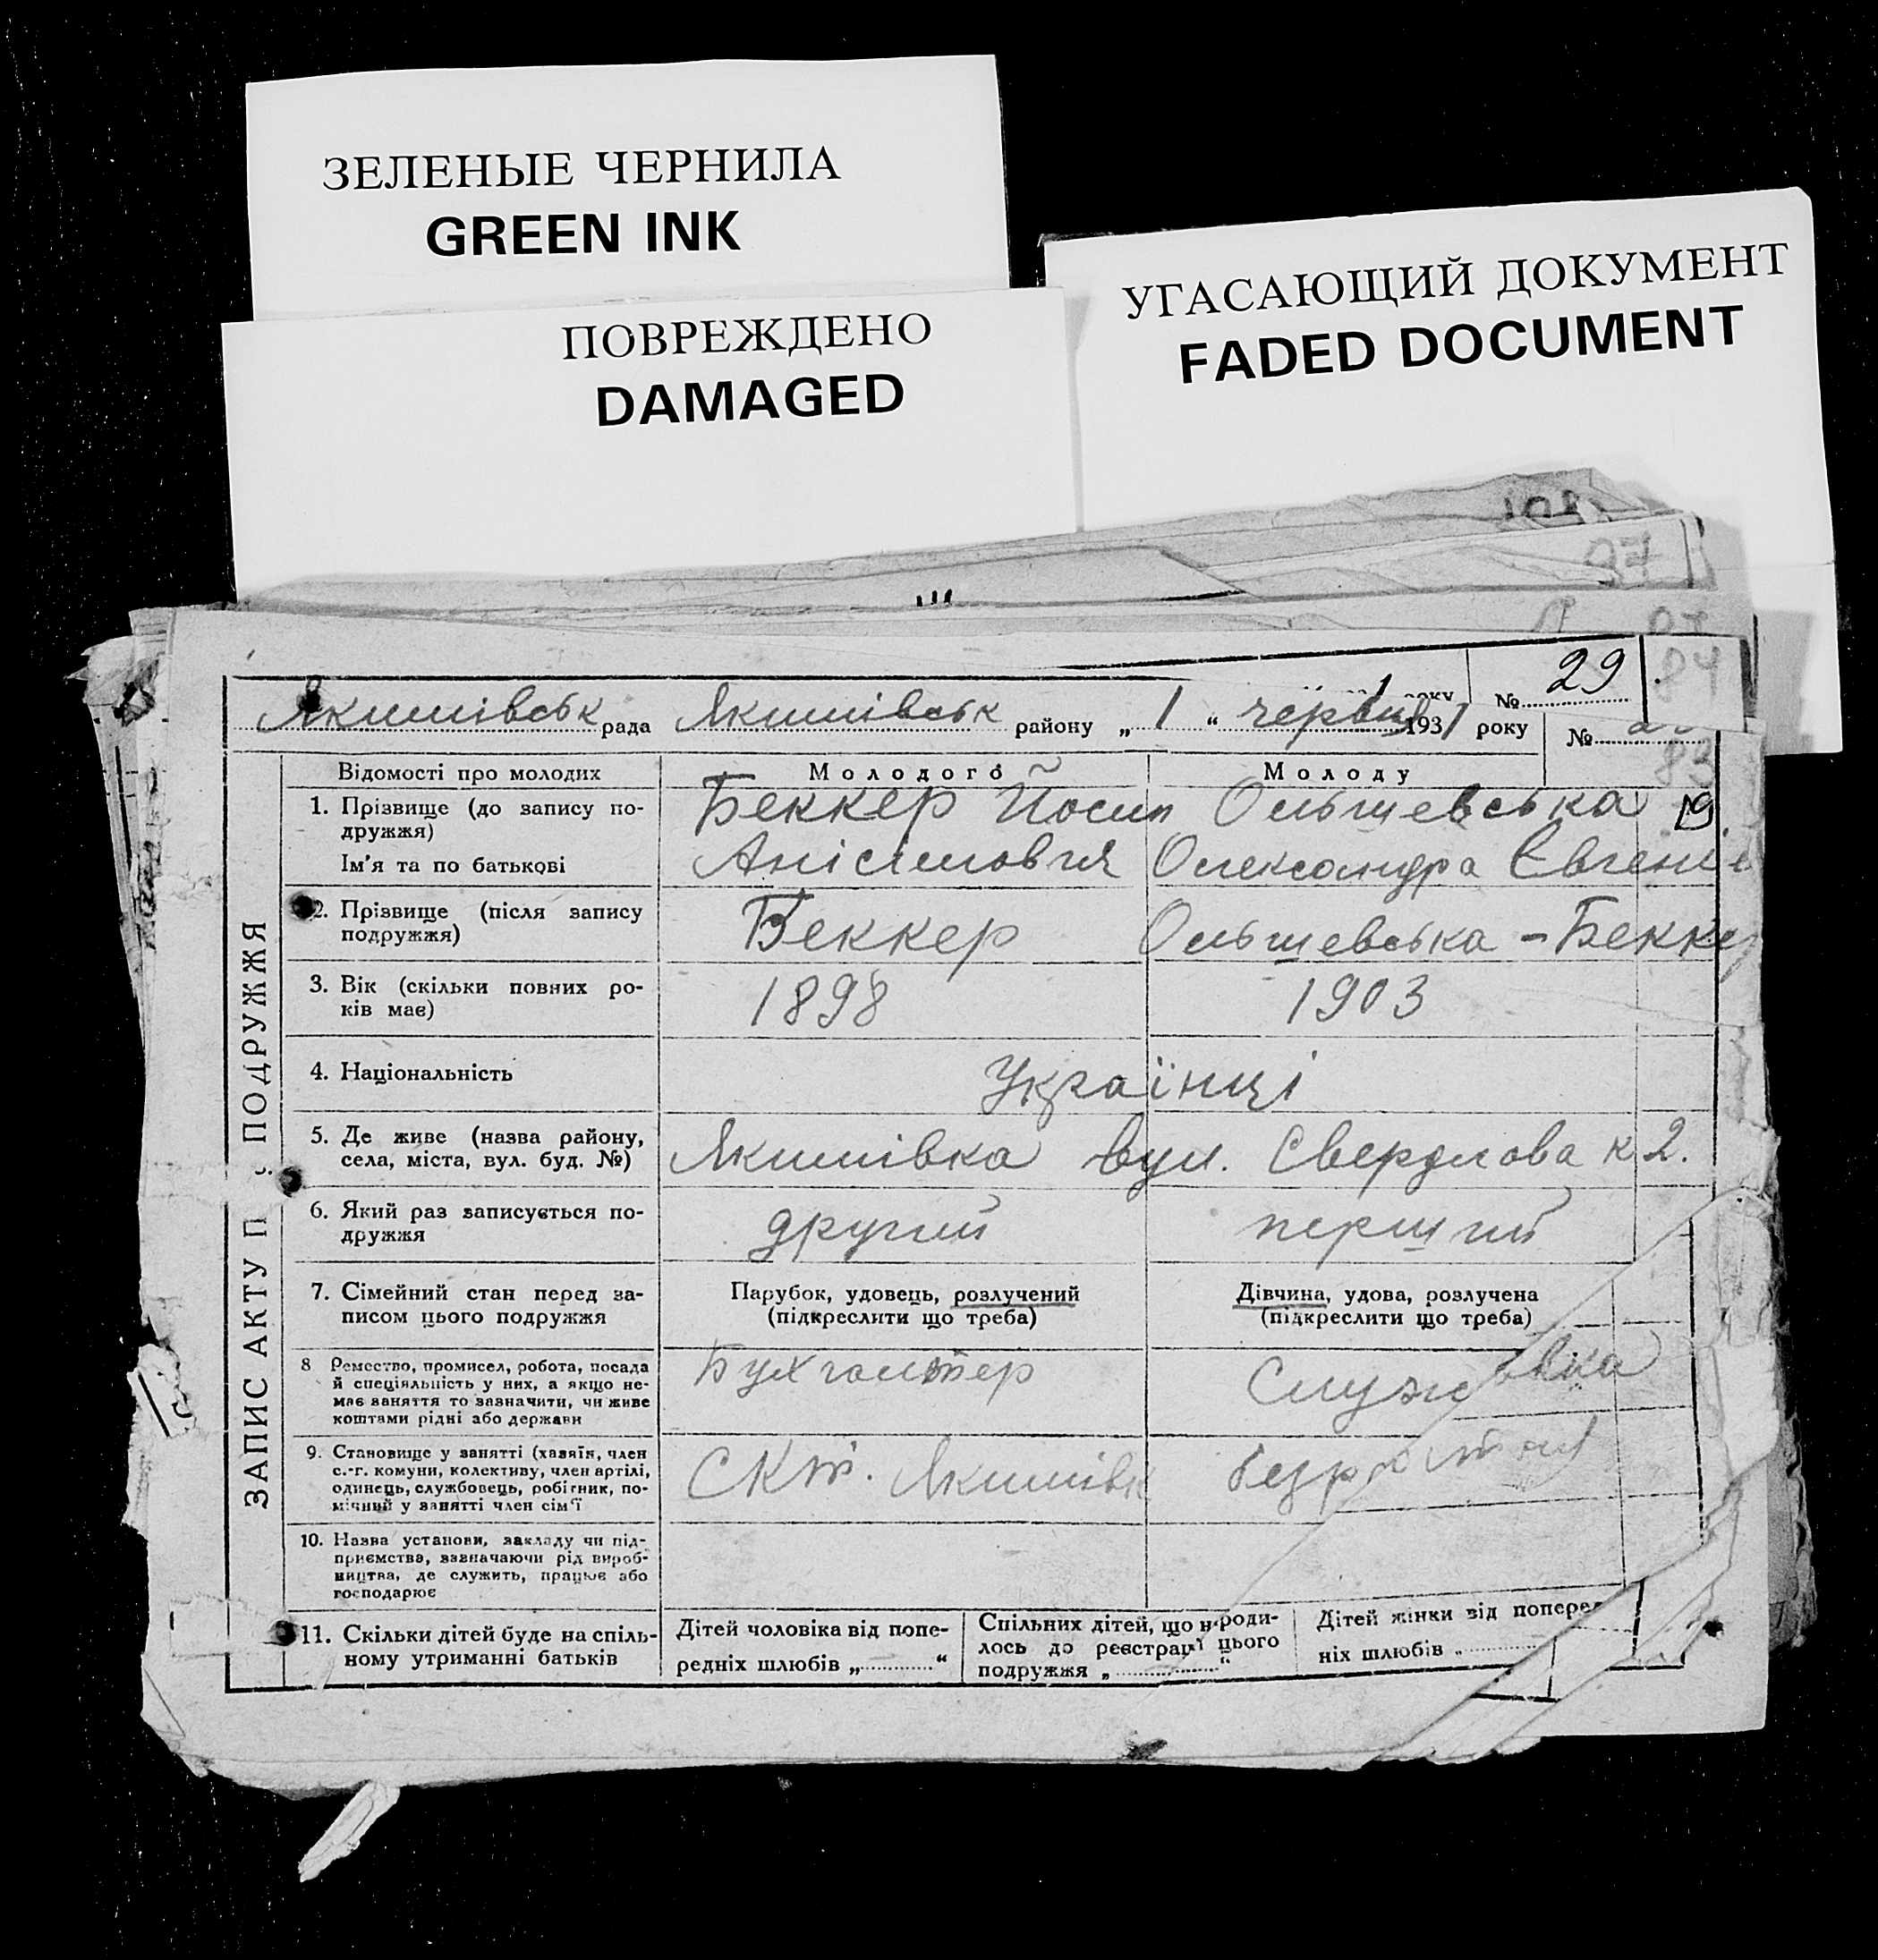 ЗЕЛЕНЫЕ ЧЕРНИЛА
GREEN INK
ПОВРЕЖДЕНО
DAMAGED
УГАСАЮЩИЙ ДОКУМЕНТ
FADED DOCUMENT
97
87
№ 29 84
Якимівськ рада Якимівськ району „ 1 “ червня 1931 року №
83
ЗАПИС АКТУ П ПОДРУЖЖЯ
Відомості про молодих Молодого Молоду
1. Прізвище (до запису по-
дружжя)
Беккер Йосип Ольшевська
Ім'я та по батькові Анісімович Олександра Євгенів
2. Прізвище (після запису
подружжя)
Беккер Ольшевська-Беккер
3. Вік (скільки повних ро-
ків має)
1898 1903
4. Національність Українці
5. Де живе (назва району,
села, міста, вул. буд. №)
Якимівка вул. Свердлова к 2.
6. Який раз записується по-
дружжя
другий перший
7. Сімейний стан перед за-
писом цього подружжя
Парубок, удовець, розлучений
(підкреслити що треба)
Дівчина, удова, розлучена
(підкреслити що треба)
8 Ремество, промисел, робота, посада
й спеціяльність у них, а якщо не-
має заняття то зазначити, чи живе
коштами рідні або держави
Бухгалтер
9. Становище у занятті (хазяїн, член
с.-г. комуни, колективу, член артілі,
одинець, службовець, робітник, по-
мічний у занятті член сім'ї
СКт. Якимівк
10. Назва установи, закладу чи під-
приємства, зазначаючи рід вироб-
ництва, де служить, працює або
господарює
11. Скільки дітей буде на спіль-
ному утриманні батьків
Дітей чоловіка від попе-
редніх шлюбів „ “
Спільних дітей, що народи-
лось до реєстрації цього
подружжя „ “
Дітей жінки від поперед
ніх шлюбів „